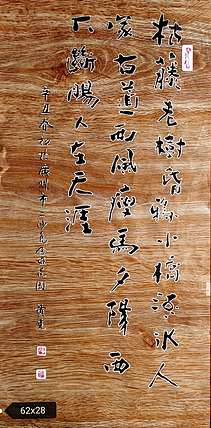 枯藤老樹昏鴉小橋流水人
家古道西風瘦馬夕陽西
下斷腸人在天涯
辛丑春
62x28